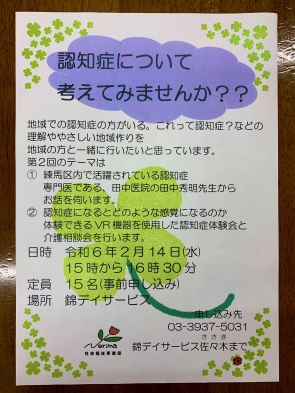 認知症について
考えてみませんか？？
地域での認知症の方がいる。これって認知症？などの
理解ややさしい地域作りを
地域の方と一緒に行いたいと思っています。
第2回のテーマは
① 練馬区内で活躍されている認知症
専門医である、田中医院の田中秀明先生から
お話を伺います。
② 認知症になるとどのような感覚になるのか
体験できるVR機器を使用した認知症体験会と
介護相談会を行います。
日時 令和6年2月14日(水)
15時から16時30分
定員 15名(事前申し込み)
場所 錦デイサービス
申し込み先
03-3937-5031
ささき
錦デイサービス佐々木まで
Nerima
社会福祉事業団